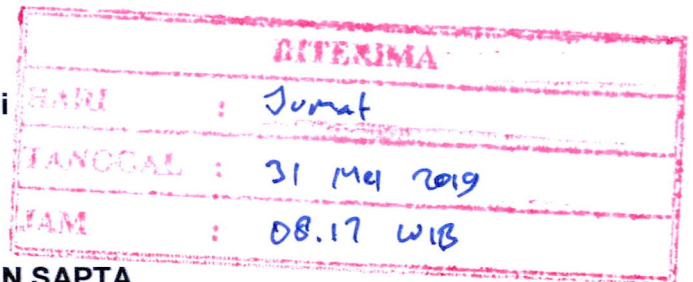 DITERIMA
i
HARI : Jumat
TANGGAL : 31 Mei 2019
JAM : 08.17 WIB
N SAPTA